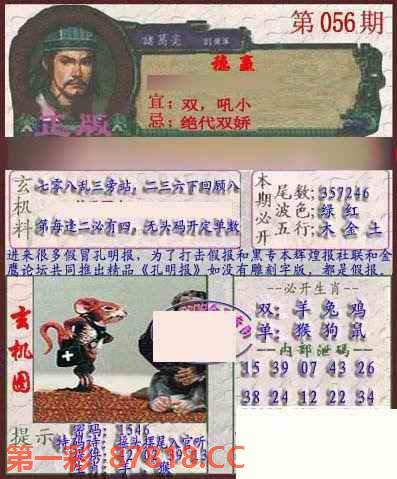 第056期
諸葛亮
稳赢
宜：双，吼小
忌：绝代双娇
正版
玄机料
七零八乱三旁站，二三六下回顾八
第每逢二必有四，无头码开定单数
本期必开
尾数;357246
波色;绿 红
五行;木 金 土
进来很多假冒孔明报，为了打击假报和黑专本辉煌报社联和金
鹰论坛共同推出精品《孔明报》如没有雕刻字版，都是假报。
玄机图
必开生肖
双: 羊 兔 鸡
单: 猴 狗 鼠
内部泄码
15 39 07 43 26
38 24 12 22 34
提示
密码: 1546
特码诗: 摇头摆尾入官听
第一彩 87818.CC